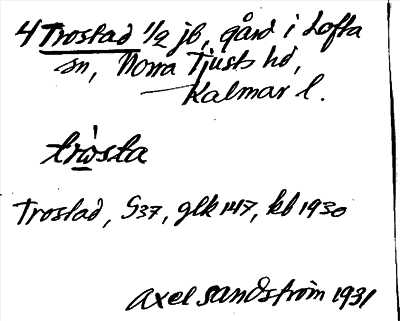 4 Trostad 1/2 jb, gård i Lofta
sn, Norra Tjusts hd,
Kalmar l.
trẁsta
Trostad, S37, glk 147, kb 1930
Axel Sandström 1931